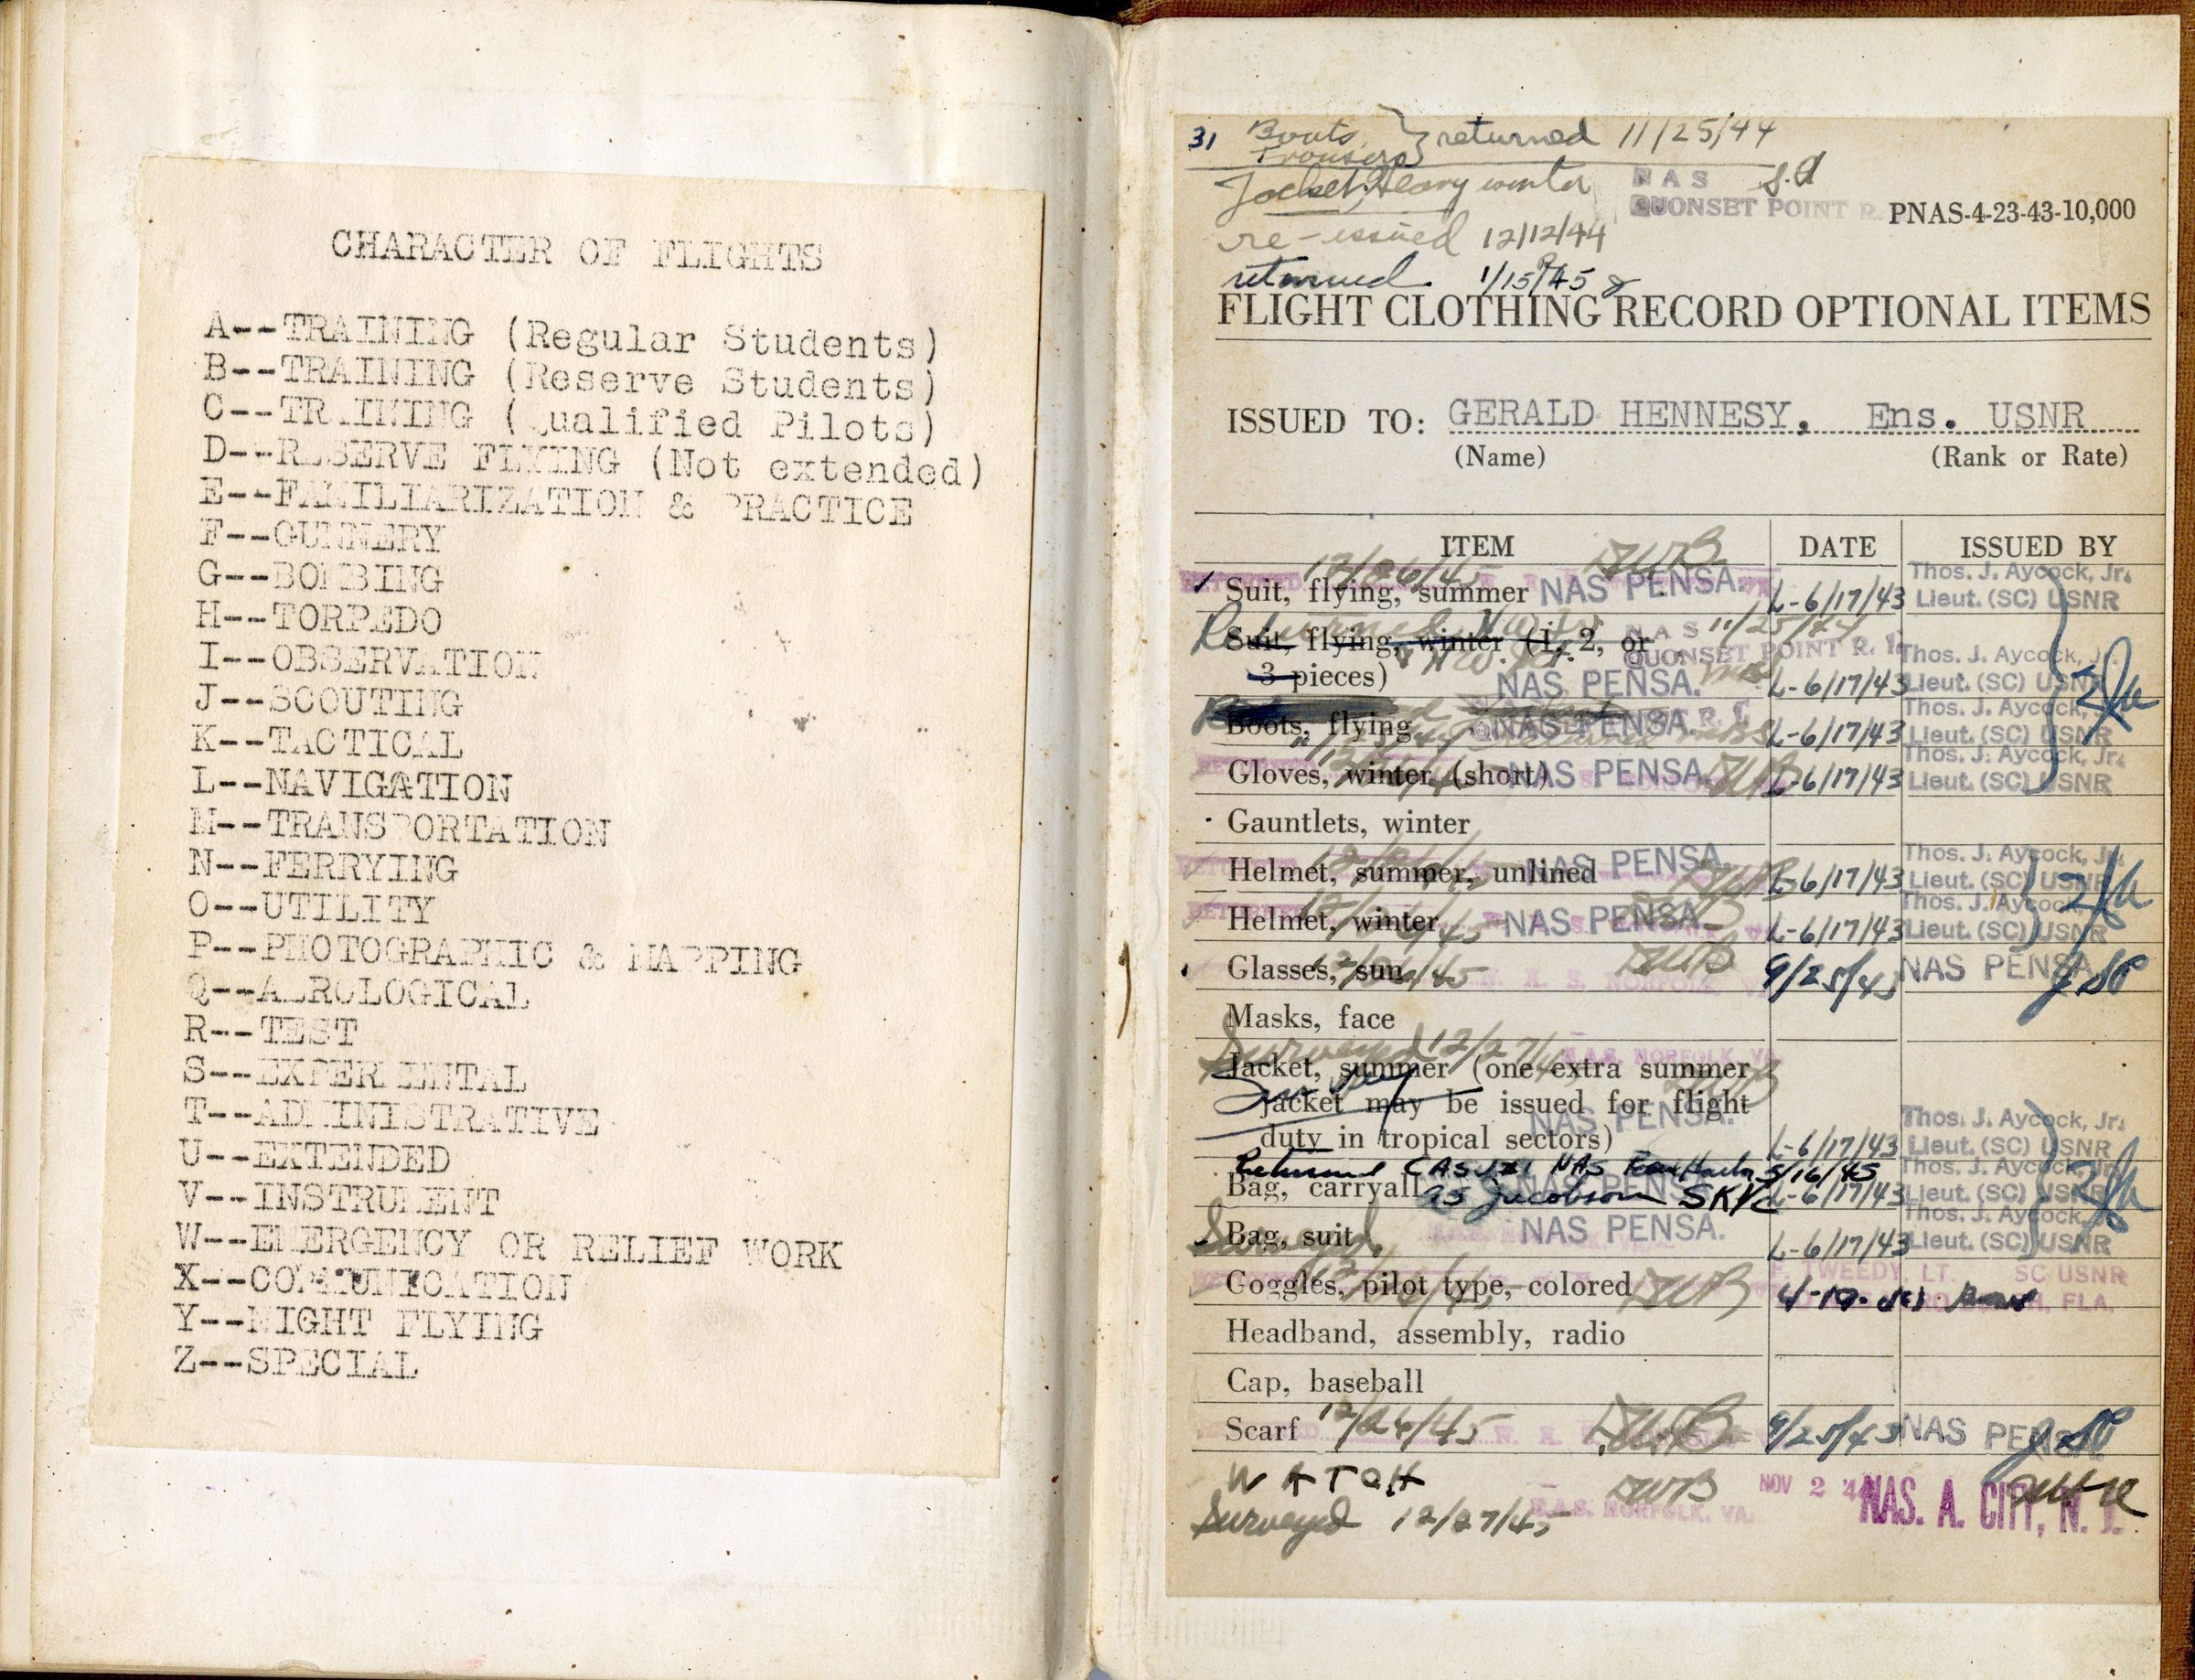 CHARACTER OF FLIGHTS
A--TRAINING (Regular Students)
B--TRAINING (Reserve Students)
C--TRAINING (Qualified Pilots)
D--RESERVE FLYING (Not extended)
E--FAMILIARIZATION & PRACTICE
F--GUNNERY
G--BOMBING
H--TORPEDO
I--OBSERVATION
J--SCOUTING
K--TACTICAL
L--NAVIGATION
M--TRANSPORTATION
N--FERRYING
O--UTILITY
P--PHOTOGRAPHIC & MAPPING
Q--AEROLOGICAL
R--TEST
S--EXPERIMENTAL
T--ADMINISTRATIVE
U--EXTENDED
V--INSTRUMENT
W--EMERGENCY OR RELIEF WORK
X--COMMUNICATION
Y--NIGHT FLYING
Z--SPECIAL
31 Boots, } returned 11/25/44
Trousers
Jacket, Heavy winter NAS
QUONSET POINT R. PNAS-4-23-43-10,000
re-issued 12/12/44
returned 1/15/45
FLIGHT CLOTHING RECORD OPTIONAL ITEMS
ISSUED TO: GERALD HENNESY, Ens. USNR
(Name) (Rank or Rate)
ITEM DATE ISSUED BY
12/26/45 DWB Thos. J. Aycock, Jr.
Suit, flying, summer NAS PENSA. L-6/17/43 Lieut. (SC) USNR
Returned NAS 11/25/44
Suit, flying, winter (1, 2, or QUONSET POINT R. I. Thos. J. Aycock, Jr.
3 pieces) NAS PENSA. L-6/17/43 Lieut. (SC) USNR
Thos. J. Aycock, J
Boots, flying NAS PENSA. L-6/17/43 Lieut. (SC) USNR
Thos. J. Aycock, Jr.
Gloves, winter (short) NAS PENSA. DWB L-6/17/43 Lieut. (SC) USNR
Gauntlets, winter
Thos. J. Aycock, Jr.
Helmet, summer, unlined NAS PENSA. DWB L-6/17/43 Lieut. (SC) USNR
Thos. J. Aycock,
Helmet, winter 12/26/45 NAS PENSA. DWB L-6/17/43 Lieut. (SC) USNR
Glasses, sun 12/26/45 DWB N. A. S. NORFOLK, VA. 9/25/43 NAS PENSA
Masks, face
Surveyed 12/27/45 N.A.S. NORFOLK, VA.
Jacket, summer (one extra summer DWB
Survey
jacket may be issued for flight NAS PENSA. Thos. J. Aycock, Jr.
duty in tropical sectors) L-6/17/43 Lieut. (SC) USNR
Returned CASU NAS Pearl Harbor 5/16/45 Thos. J. Aycock, Jr.
Bag, carryall Jacobson L-6/17/43 Lieut. (SC) USNR
Surveyed Thos. J. Aycock,
Bag, suit NAS PENSA. L-6/17/43 Lieut. (SC) USNR
TWEEDY, LT. SC USNR
Goggles, pilot type, colored DWB FLA.
Headband, assembly, radio
Cap, baseball
Scarf 12/26/45 DWB 9/25/43 NAS PENSA.
WATCH DWB NOV 2 44 NAS. A. CITY, N. J.
Surveyed 12/27/45 N.A.S. NORFOLK, VA.